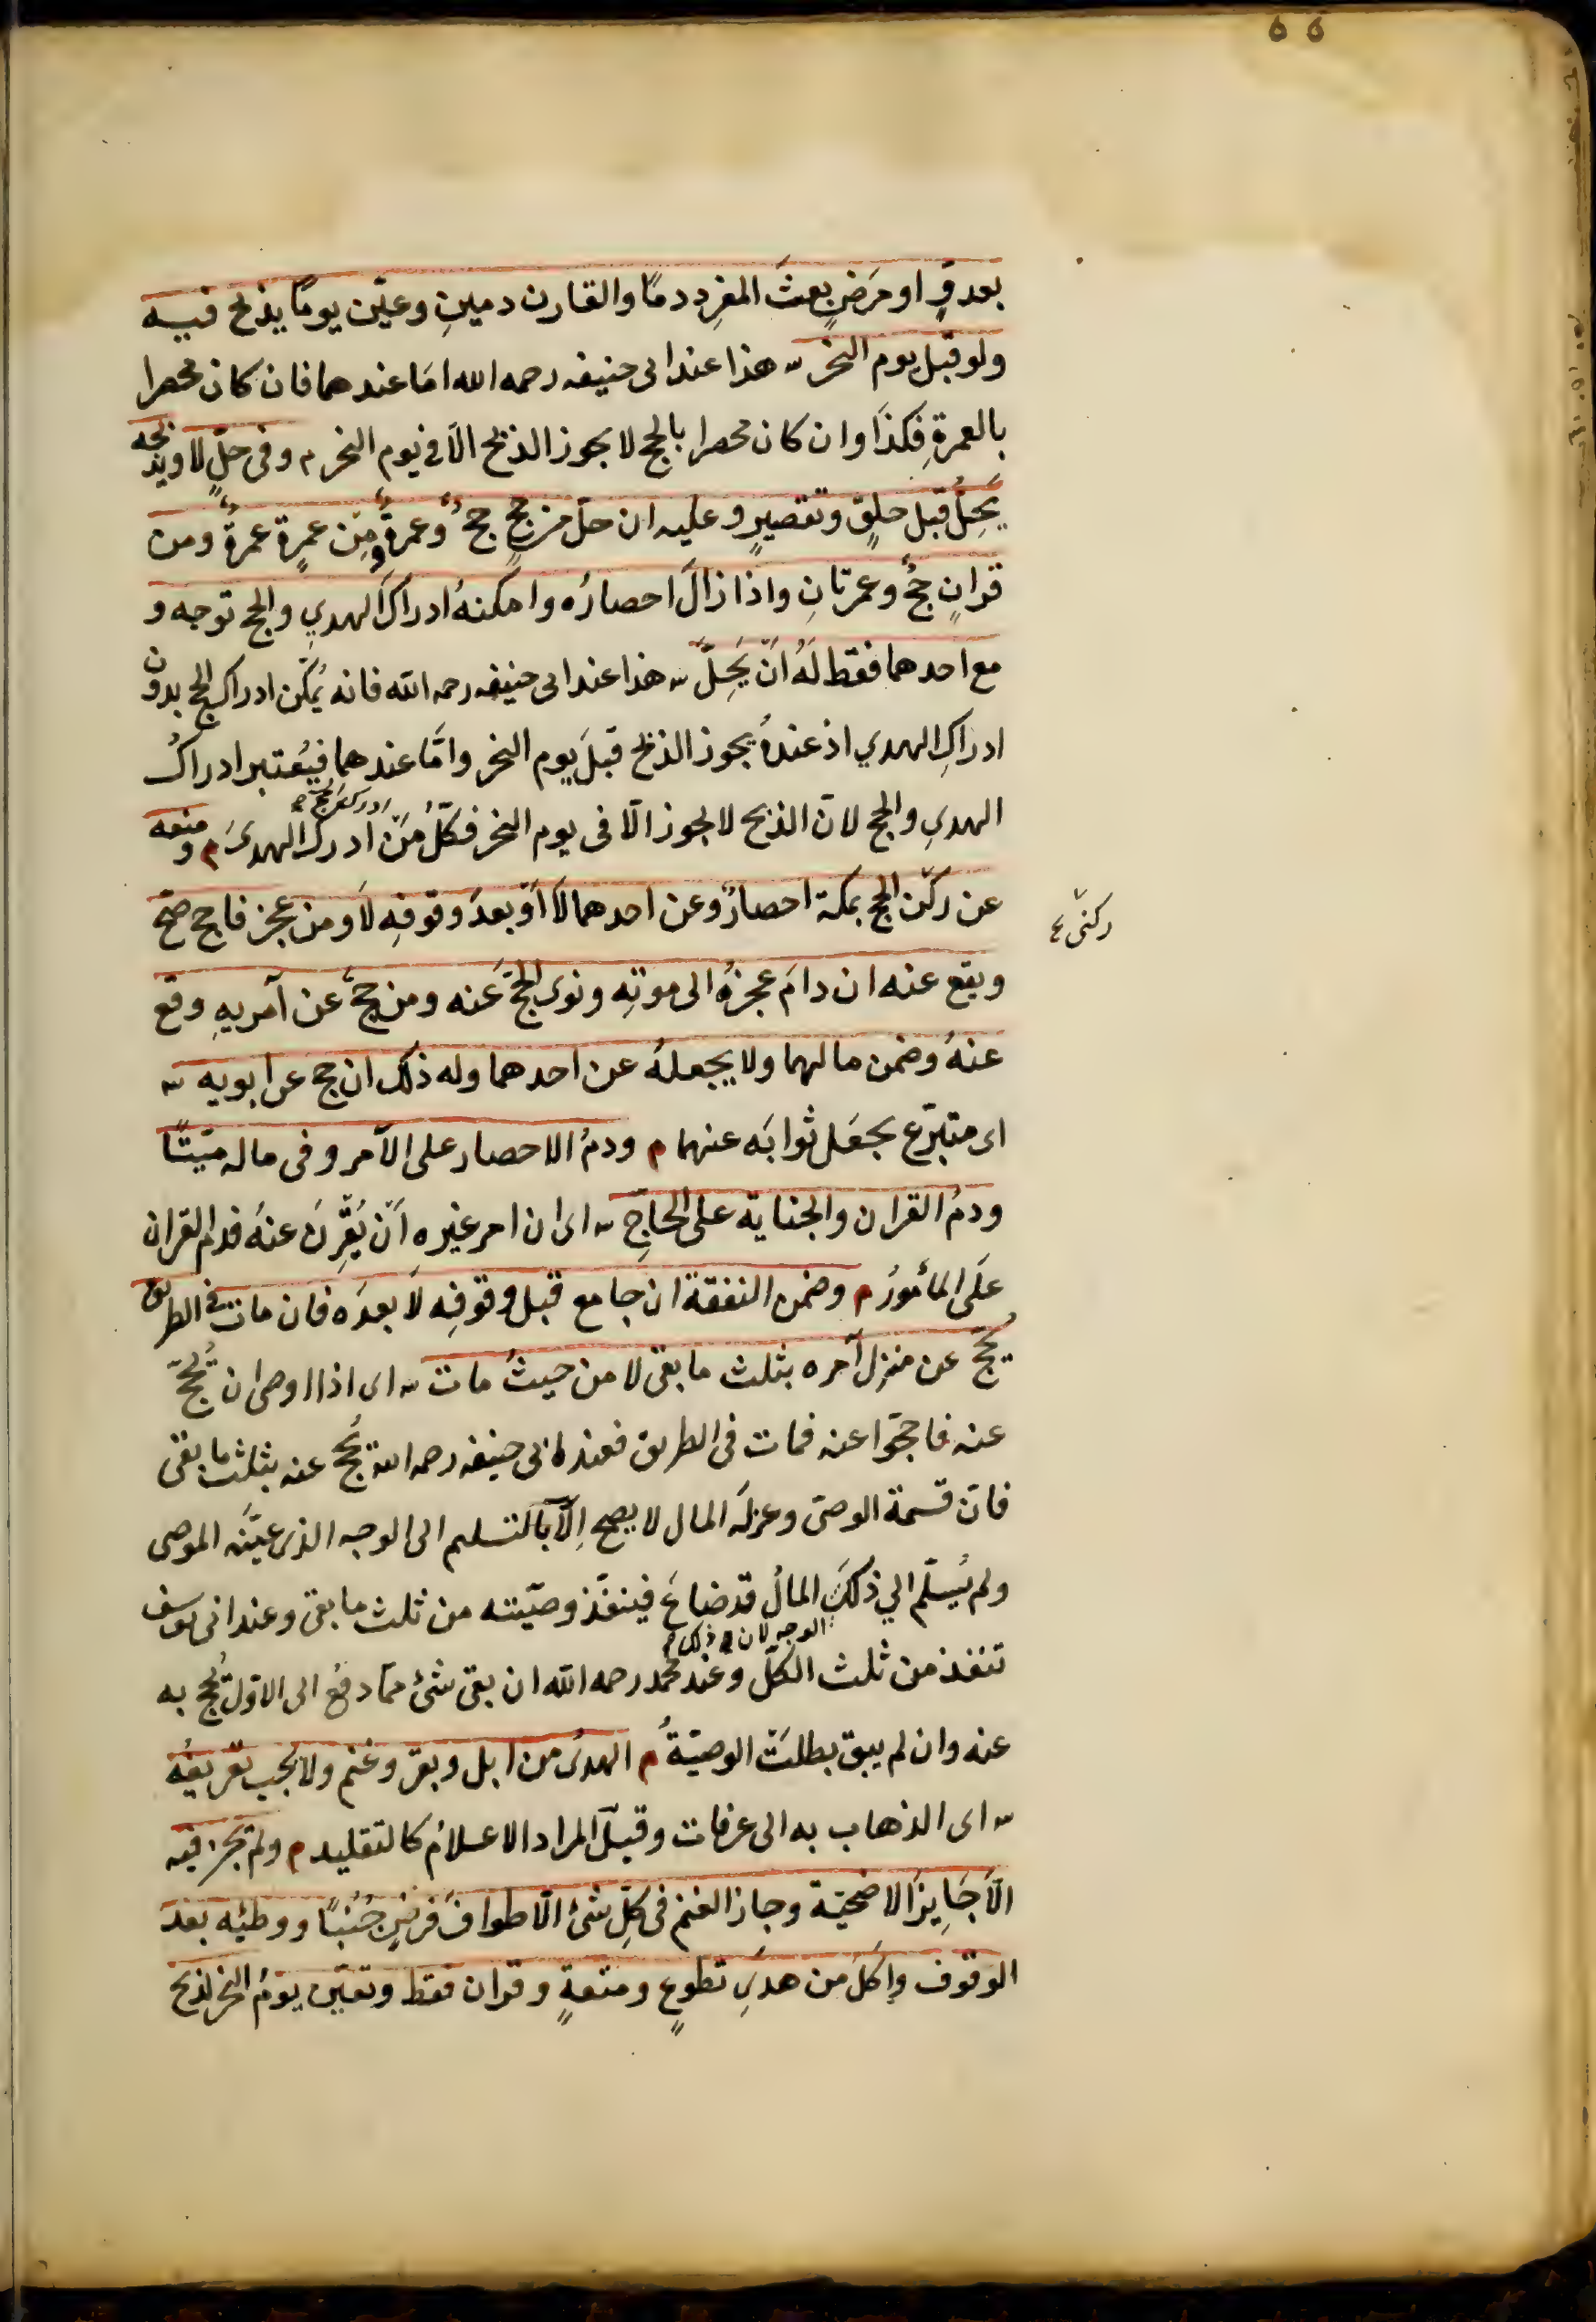 ٥٥
بعدوٍّ او مَرَضٍ بعثَ المفرِد دمًا والقارن دمينِ وعيّن يومًا يذبح فيه
ولو قبل يوم النحر هذا عند ابى حنيفه رحمه الله امّا عندهما فان كان محصرا
بالعمرةِ فكذَا وان كان محصرا بالحج لا يجوز الذبح الّا فى يوم النحر م وفى حلٍّ لا وبذبحه
يَحِلُّ قبل حلقٍ وتقصيرٍ وعليه ان حلّ من حجٍّ حجٌّ وعمرةٌ ومِن عمرةٍ عمرةٌ ومن
قرانٍ حجٌّ وعمرتانِ واذا زالَ احصارُه وامكنهُ ادراكَ الهديِ والحج توجه و
مع احدهما فقط لَهُ اَنْ يَحِلَّ هذا عند ابى حنيفه رحمه الله فانه يُمْكن ادراك الحج بدون
ادراكِ الهدي اذ عندهُ يجوز الذبح قبلَ يوم النحر وامّا عندهما فيُعتبر ادراكُ
الهديِ والحج لانّ الذبح لا يجوز الّا فى يوم النحر فكلُّ مَنْ ادرك الهدىَ م ومنعه
ادرك الحج
عن ركْن الحج بمكة احصارٌ وعن احدهما لَا اَوْ بعدَ وقوفِهِ لَا ومن عجز فاحج صحّ
ركنى
ويقع عنه ان دامَ عجزهُ الى موتِه ونوى الحجّ عَنه ومن حجَّ عن آمريهِ وقع
عنهُ وضمن مالهما ولا يجعلهُ عن احدهما وله ذلك ان حج عن ابويه
اى متبرّع بجعَل ثوابَه عنهما م ودمُ الاحصار على الآمر وفى ماله ميّتًا
ودمُ القران والجناية على الحاجِّ اى ان امر غيره اَنْ يُقْرِنَ عنهُ فدم القران
علَى المأمورُ م وضمن النفقة ان جامع قبل وقوفِه لَا بعدَه فان مات فى الطريق
يُحَجّ عن منزِل آمره بثلث ما بقى لا من حيثُ مات اى اذا اوصى ان يُحَجّ
عنه فاحجّوا عنه فمات فى الطريق فعند ابى حنيفه رحمه الله يُحج عنه بثلث ما بقى
فانّ قسمة الوصىّ وعزلَه المال لا يصح اِلّا بالتسليم الى الوجه الذى عيّنَه الموصى
ولم يُسلّم الي ذلكَ المالُ قد ضاعَ فينفّذ وصيّته من ثلث ما بقى وعند ابى يوسف
الوجه لان ذلك
تنفذ من ثلث الكلّ وعند محمد رحمه الله ان بقى شئ ممّا دفع الى الاوّل يُحج به
عنه وان لم يبق بطلتْ الوصيّةُ م الهدىُ من ابل وبقر وغنم ولا يجب تعريفُه
اى الذهاب به الى عرفات وقيلَ المراد الاعلام كالتقليد م ولم يجز فيه
الّا جَايزَ الاضحيّة وجاز الغنم فى كلِّ شئ الّا طوافَ فرضٍ جُنُبًا ووطئِه بعدَ
الوقوف واكلَ من هدىِ تطوعٍ ومتعةٍ وقران فقط وتعيّن يومُ النحر لذبح